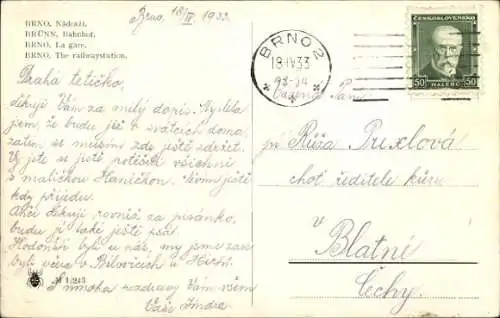 BRNO. Nádraží.
BRÜNN. Bahnhof.
BRNO. La gare.
BRNO. The railwaystation.
Brno, 18/IV. 1933.
Drahá tetičko,
děkuji Vám za milý dopis. Myslela
jsem, že budu již o svátcích doma,
zatím se musím zde ještě zdržet.
Vy jste se jistě potěšili všichni
s maličkou Haničkou. Nevím ještě
kdy přijedu.
děkuji rovněž za psaníčko,
budu jí také ještě psát.
Hodonští byli u nás, my jsme zase
byli včera v Bílovicích u
S mnoha pozdravy Vám všem
Vaše Jindra.
M 1.243
BRNO 2
18.IV.33
ČESKOSLOVENSKO
50 HALÉŘŮ 50
Vážená Paní
pí Růža Prexlová
choť ředitele kůru
v Blatné
Čechy.